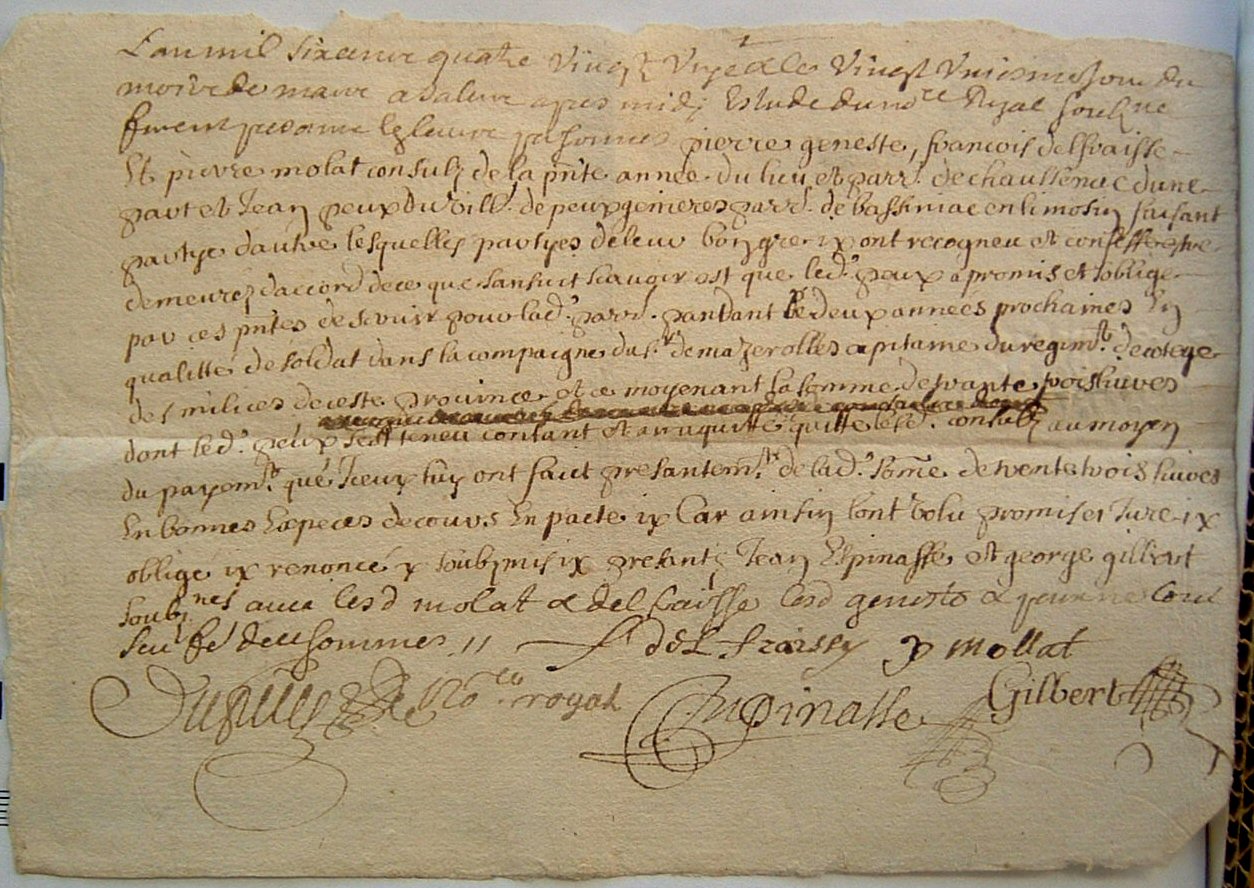 Lan mil six cens quatre vingt unze & le vingt uniesme jour du
mois de mars a salers apres midy Estude du no.re Royal soubz.ne
furent presans personnes pierre geneste, francois delfraisse
Et pierre molat consulz de la p̄nte année du lieu et parr. de chaussenac dune
part et Jean peux du vill. de peuxgenieres parr. de bassiniac en limosin faisant
partye dautre lesquelles partyes de leur bon gre ix ont recogneu et confessé estre
demeurez daccord de ce que sansuit scavoir est que led. peux a promis et soblige
par ces p̄ntes de servir pour lad. parr. pandant les deux années prochaines En
qualitté de soldat dans la compaigne du s.r de mazerolles capitaine du regim.t de cotege
des milices de ceste province et ce moyenant la somme de trante trois livres
dont led. peux sest teneu contant et en a quitté quitte lesd. consulz au moyen
du payem.t que Iceux luy ont faict presantem.t de lad. some de trente trois livres
En bonnes Especes de cours En pacte ix Car ainsin lont volu promis et Juré ix
obligé ix renoncé & soubzmis ix presantz Jean Espinasse et george gilbert
soubz.nes avec lesd molat & delfraisse lesd geneste & peux ne
de ce sommés //
f. delfraisse p mollat
no.re royal
Espinasse
Gilbert